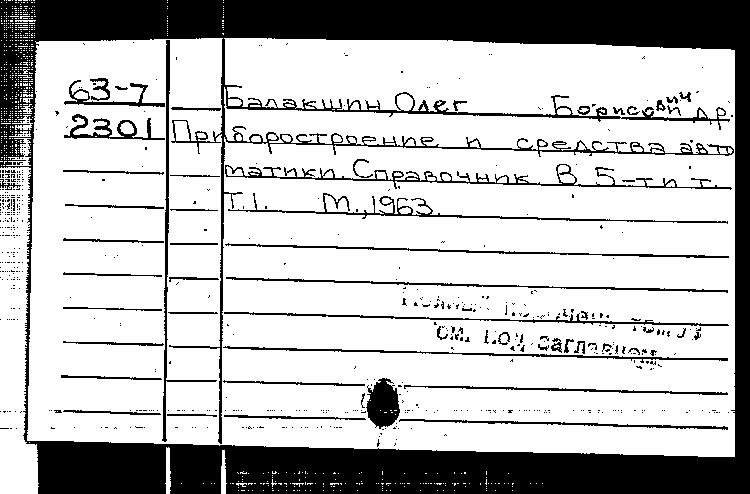 63-7 Балакшин, Олег Борисович и др.
2301 Приборостроение и средства авто
матики. Справочник В 5-ти т.
Т.1. М., 1963.
см. под заглавием